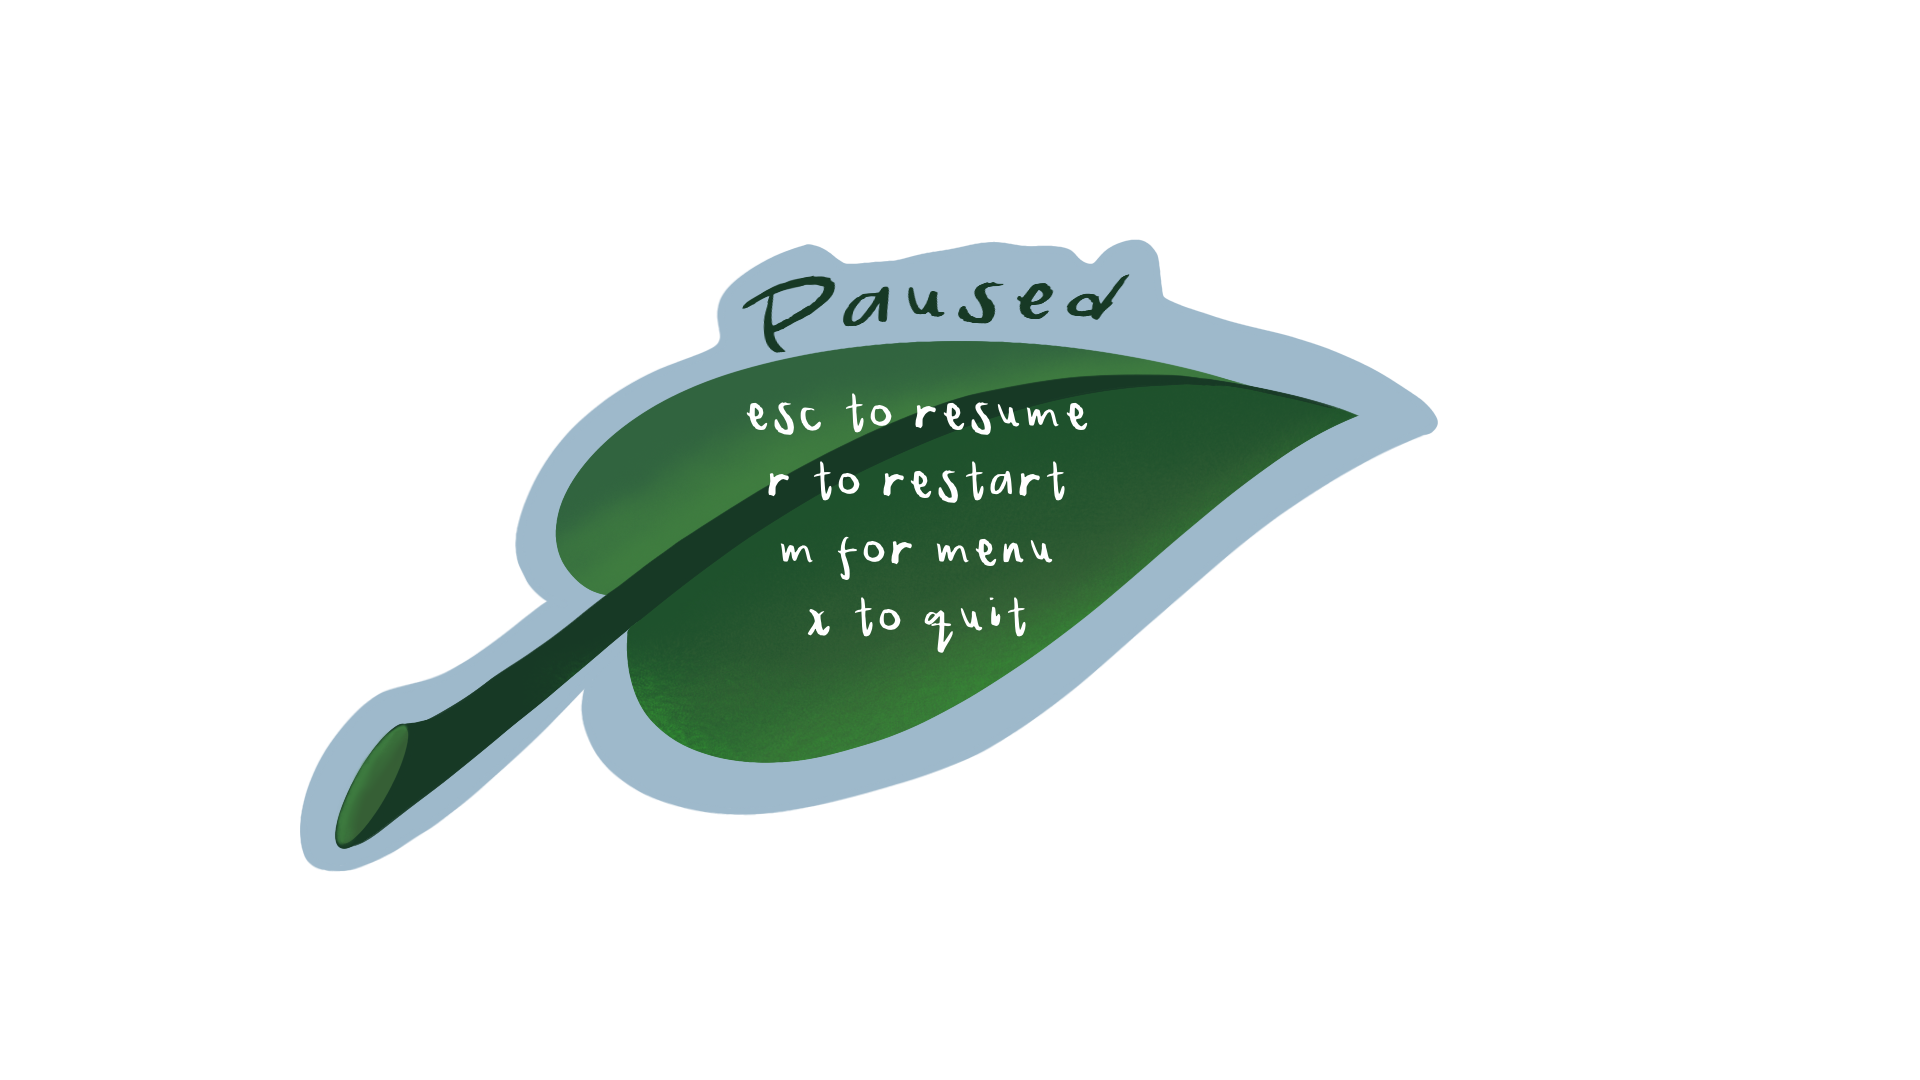 Paused
esc to resume
r to restart
m for menu
x to quit